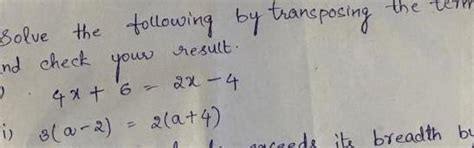 Solve the following by transposing the term
nd check your result.
) 4x + 6 = 2x - 4
i) 3(a-2) = 2(a+4)
exceeds its breadth by